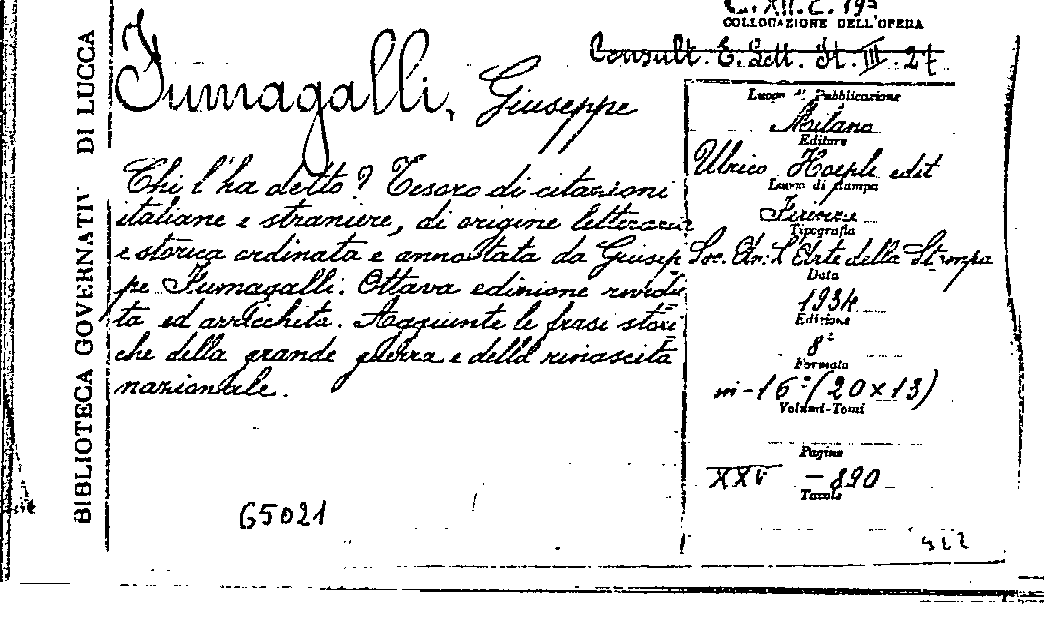 C. XII. C. 19
COLLOCAZIONE DELL'OPERA
Consult. E. Lett. It. III. 27
BIBLIOTECA GOVERNATIV DI LUCCA
Fumagalli, Giuseppe
Chi l'ha detto? Tesoro di citazioni
italiane e straniere, di origine letteraria
e storica ordinata e annotata da Giusep
pe Fumagalli. Ottava edizione rivedu
ta ed arricchita. Aggiunte le frasi stori
che della grande guerra e della rinascita
nazionale.
65021
Luogo di Pubblicazione
Milano
Editore
Ulrico Hoepli edit
Luogo di stampa
Firenze
Tipografia
Soc. An: L'Arte della Stampa
Data
1934
Edizione
8ª
Formato
in-16º (20x13)
Volumi-Tomi
Pagine
XXV - 890
Tavole